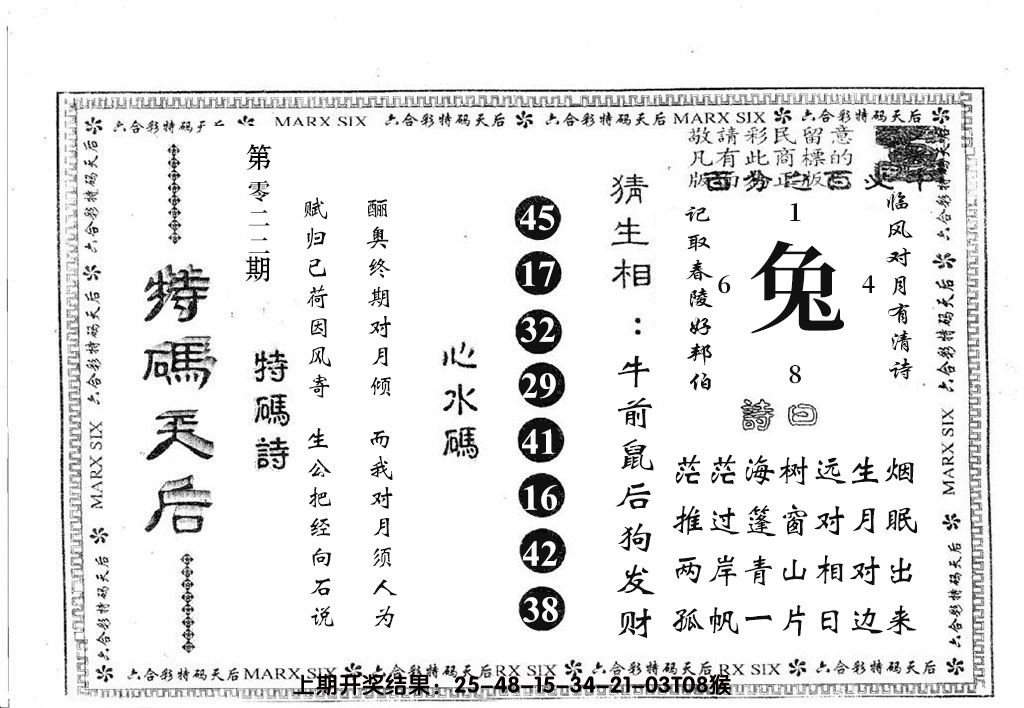 六合彩特码天后 MARX SIX 六合彩特码天后 六合彩特码天后 MARX SIX 六合彩特码天后
六合彩特码天后 六合彩特码天后 MARX SIX 六合彩特码天后
特碼天后
第零二二期
特碼詩
酾奥终期对月倾 而我对月须人为
赋归已荷因风寄 生公把经向石说
心水碼
45
17
32
29
41
16
42
38
猜生相：牛前鼠后狗发财
敬請彩民留意
凡有此商標的
版面 正版
百分之百
临风对月有清诗
记取春陵好邦伯
1
6 兔 4
8
詩曰
茫茫海树远生烟
推过篷窗对月眠
两岸青山相对出
孤帆一片日边来
六合彩特码天后 六合彩特码天后 MARX SIX 六合彩特码天后
六合彩特码天后 MARX SIX 六合彩特码天后 RX SIX 六合彩特码天后 RX SIX 六合彩特码天后
上期开奖结果：25-48-15-34-21-03T08猴